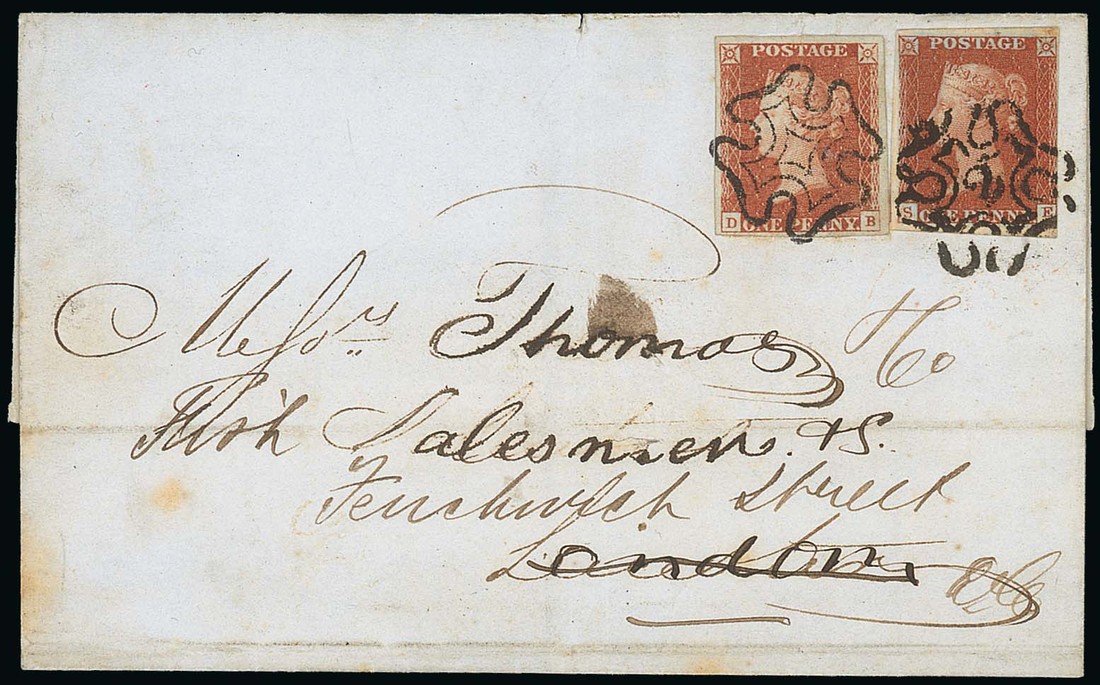 POSTAGE
D ONE PENNY. B
POSTAGE
S ONE PENNY E
2
Messrs. Thomas & Co
Fish Salesmen. &c.
Fenchurch Street
London